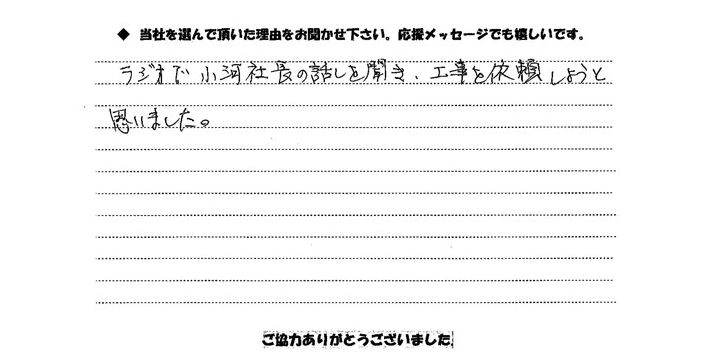 ◆ 当社を選んで頂いた理由をお聞かせ下さい。応援メッセージでも嬉しいです。
ラジオで小河社長の話しを聞き、工事を依頼しようと
思いました。
ご協力ありがとうございました